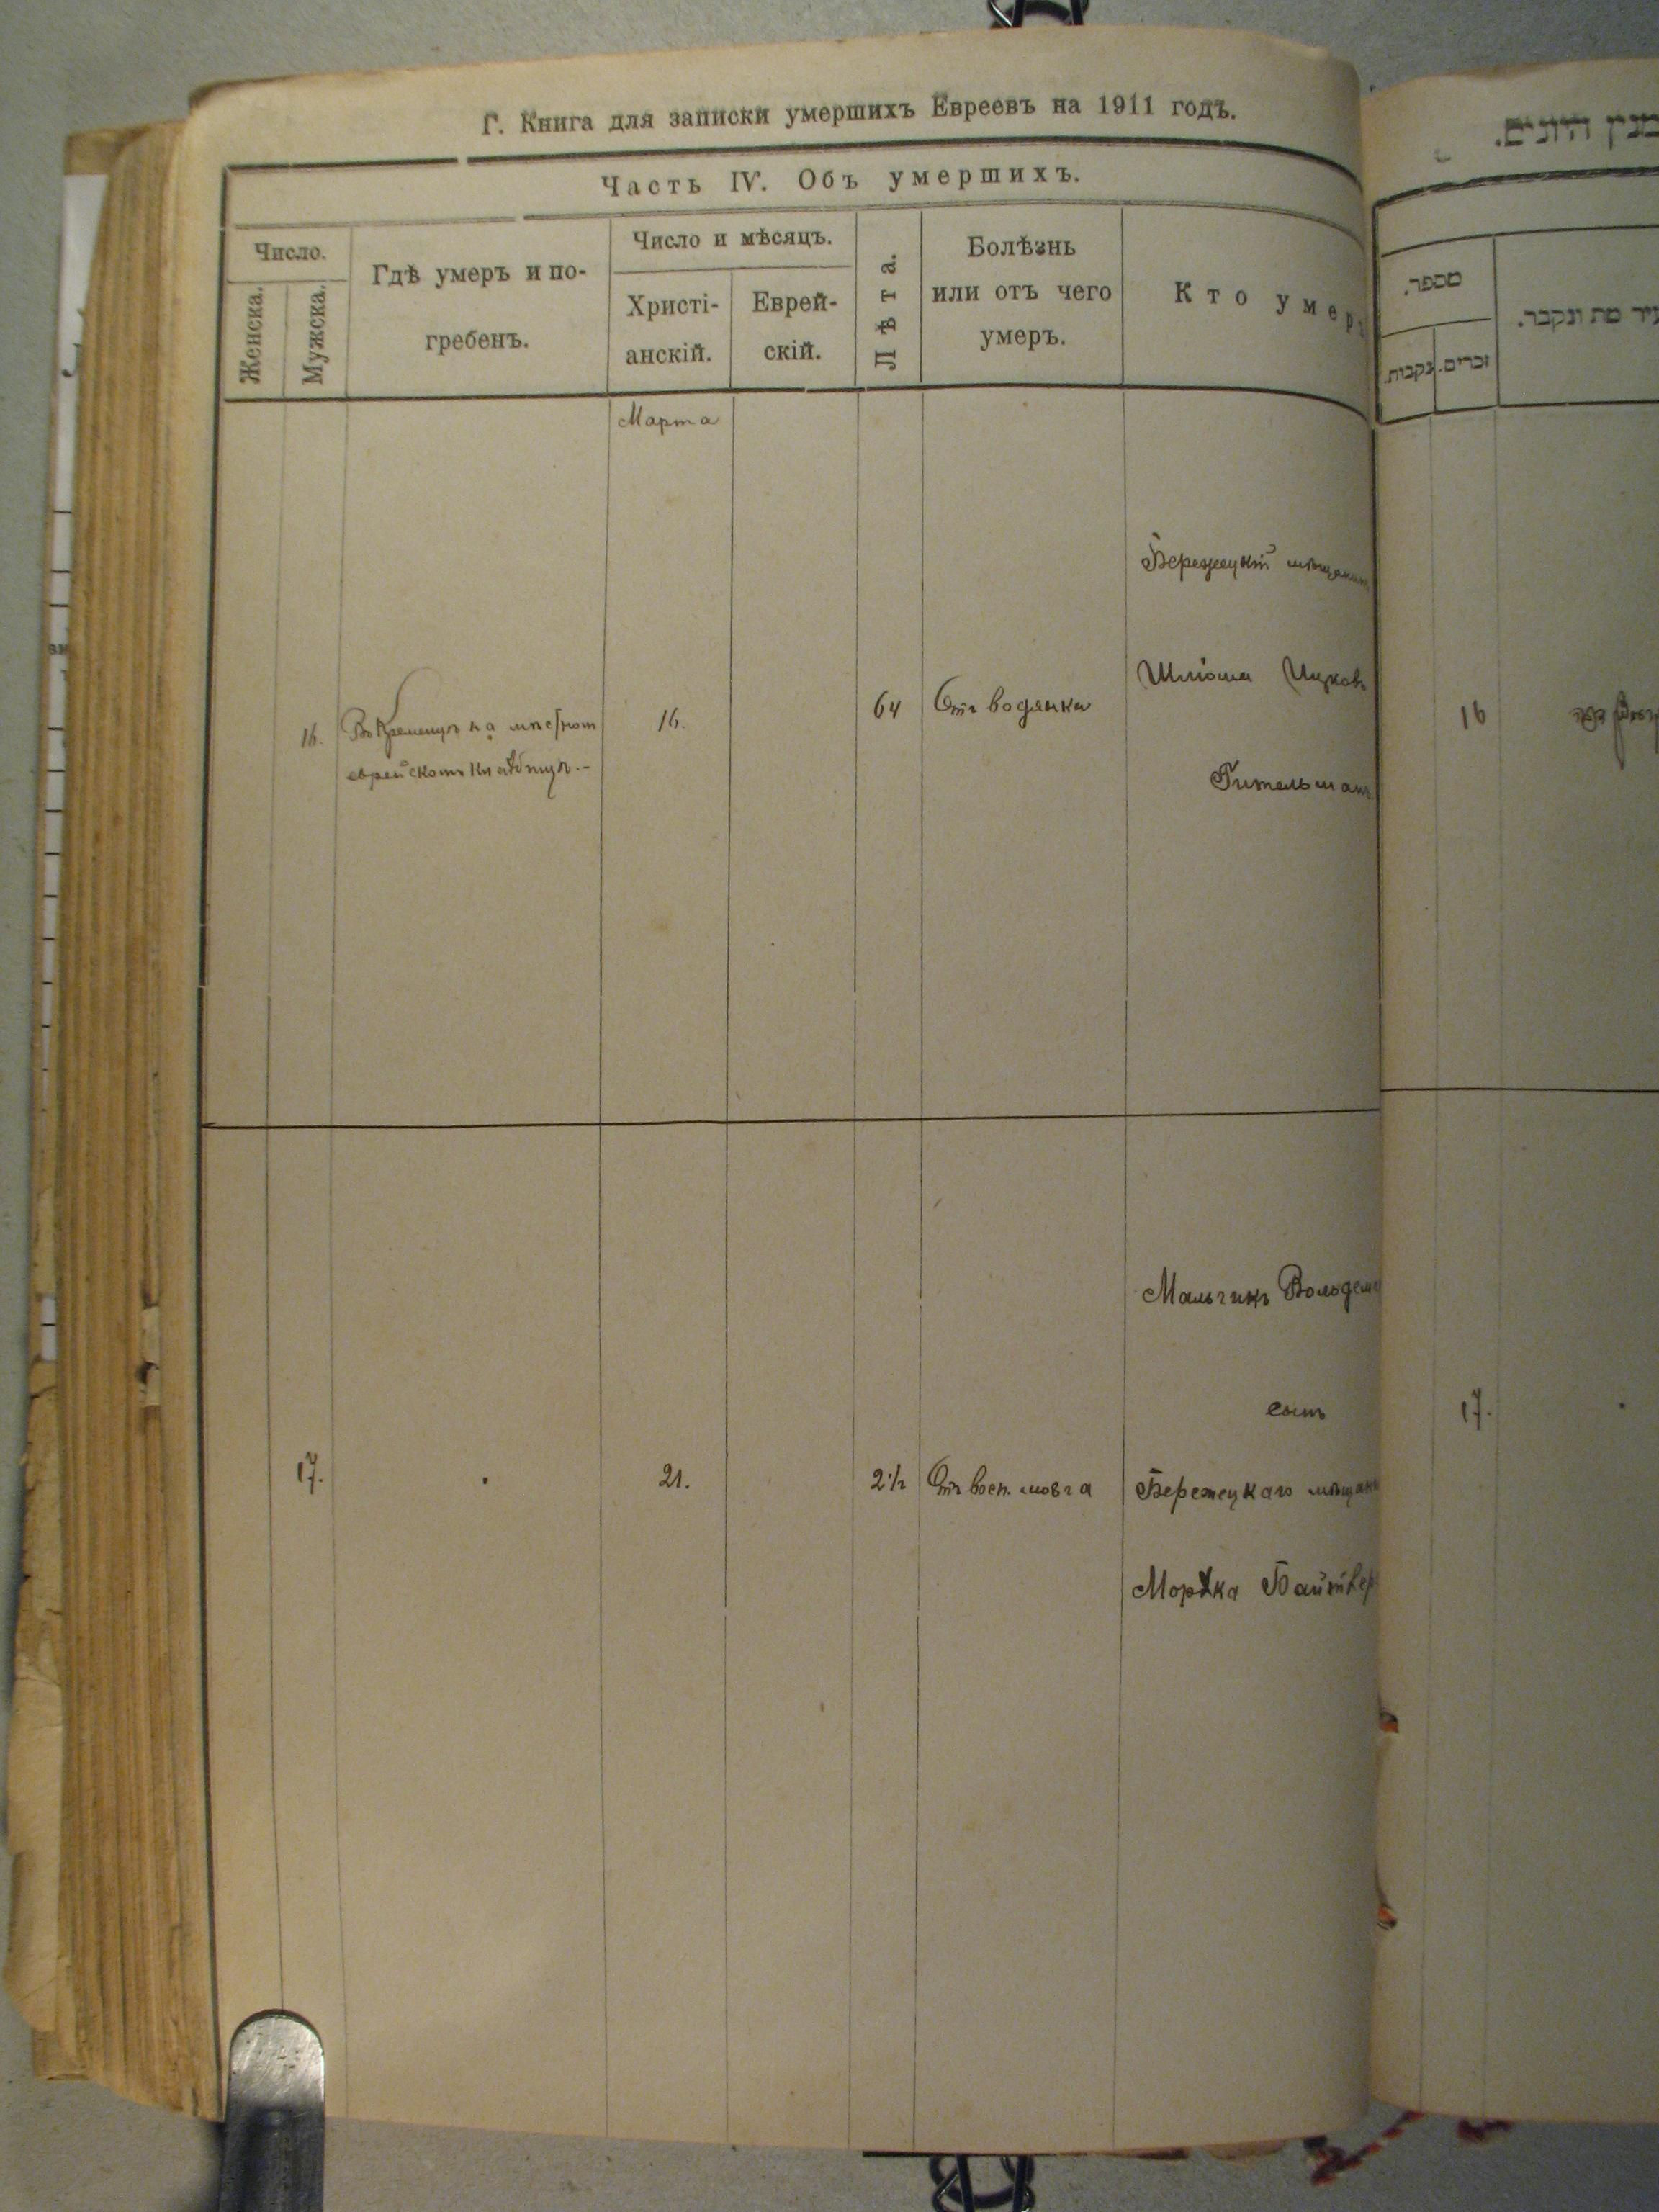 Г. Книга для записки умершихъ Евреевъ на 1911 годъ.
Часть IV. Объ умершихъ.
Число.
Женска.
Мужска.
Гдѣ умеръ и по-
гребенъ.
Число и мѣсяцъ.
Христі-
анскій.
Еврей-
скій.
Лѣта.
Болѣзнь
или отъ чего
умеръ.
Кто умер
Марта
16.
Въ Кременцѣ на мѣстном
еврейскомъ кладбищѣ.-
16.
64
Отъ водянки
Бережецкій мѣщанин
Шліома Ицков
Гительман
17.
21.
2½
Отъ восп. мозга
Мальчикъ Вольдем
сынъ
Бережецкаго мѣщани
Мордка Байтвер
היונים.
מספר.
נקבות.
זכרים.
מת ונקבר.
16
17.